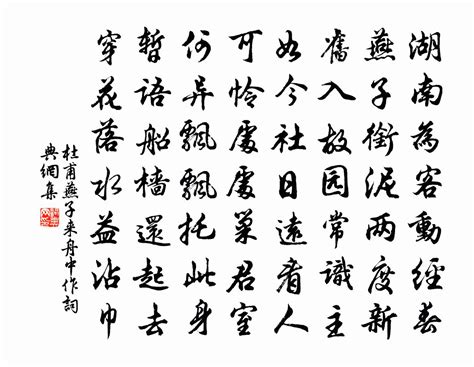 湖南為客動經春
燕子銜泥两度新
舊入故园常識主
如今社日遠看人
可怜處處巢君室
何异飄飄托此身
暫語船檣還起去
穿花落水益沾巾
杜甫燕子来舟中作詞
典網集